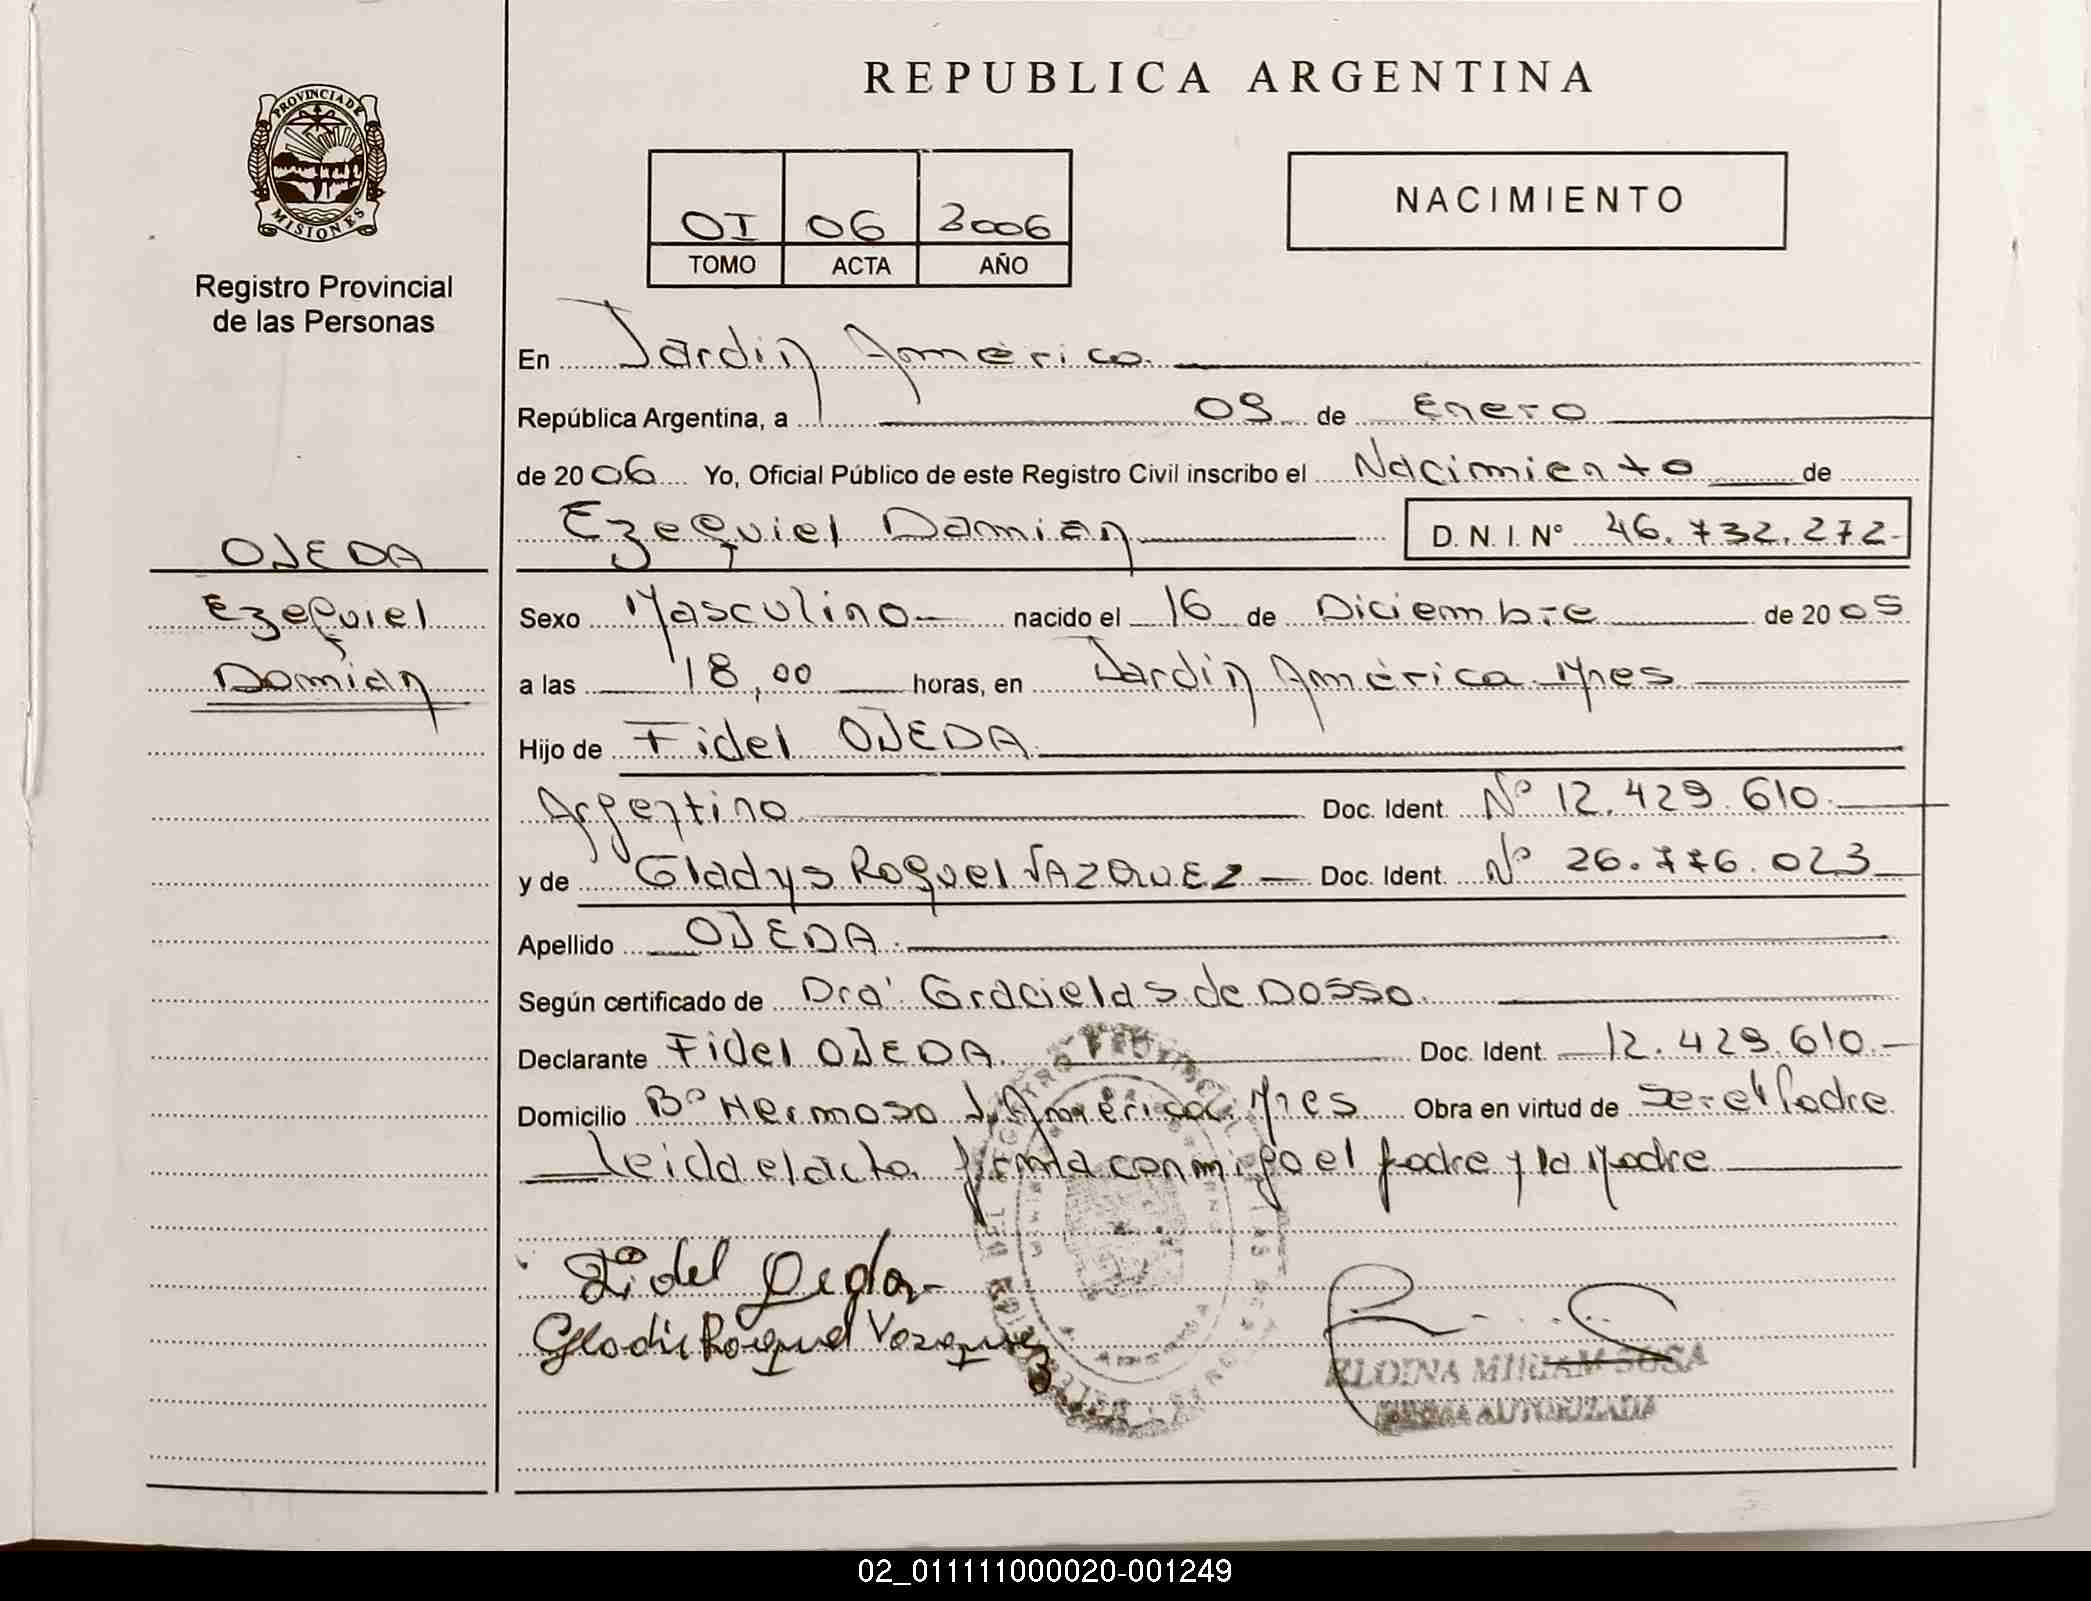 REPUBLICA ARGENTINA
PROVINCIA DE
MISIONES
Registro Provincial
de las Personas
OI 06 2006
TOMO ACTA AÑO
NACIMIENTO
En Jardin América
República Argentina, a 09 de Enero
de 2006 Yo, Oficial Público de este Registro Civil inscribo el Nacimiento de
Ezequiel Damian D. N. I. Nº 46.732.272-
OJEDA
Ezequiel
Damian
Sexo Masculino nacido el 16 de Diciembre de 2005
a las 18,00 horas, en Jardin América Mnes
Hijo de Fidel OJEDA
Argentino Doc. Ident. Nº 12.429.610.
y de Gladys Raquel VAZQUEZ Doc. Ident. Nº 26.776.023
Apellido OJEDA.
Según certificado de Dra. Graciela S. de Dosso.
Declarante Fidel OJEDA. Doc. Ident. 12.429.610.-
Domicilio Bº Hermoso J. América Mnes Obra en virtud de Ser el Padre
Leida el acta firma conmigo el padre y la Madre
Fidel Ojeda
Gladis Raquel Vazquez
ELOINA MIRIAM SOSA
FIRMA AUTORIZADA
02_011111000020-001249